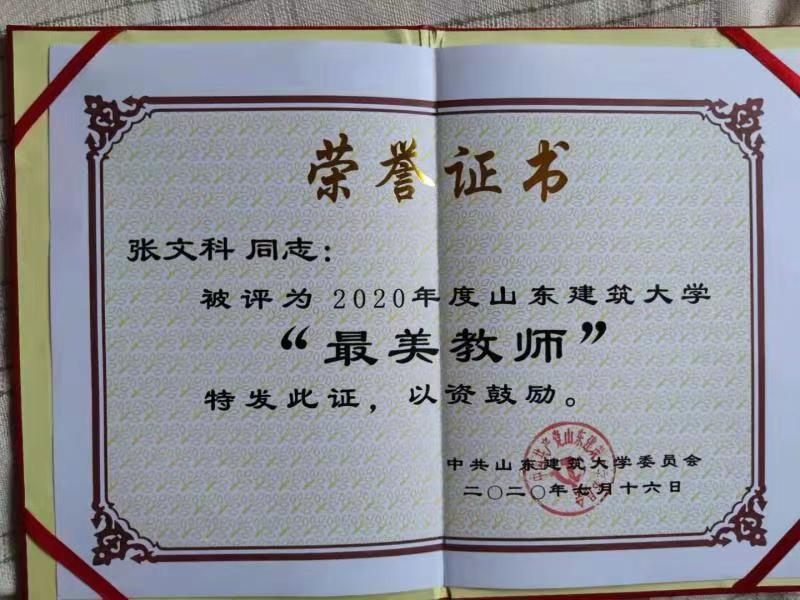 荣誉证书
张文科 同志：
被评为 2020年度山东建筑大学
“最美教师”
特发此证，以资鼓励。
中共山东建筑大学委员会
二〇二〇年七月十六日